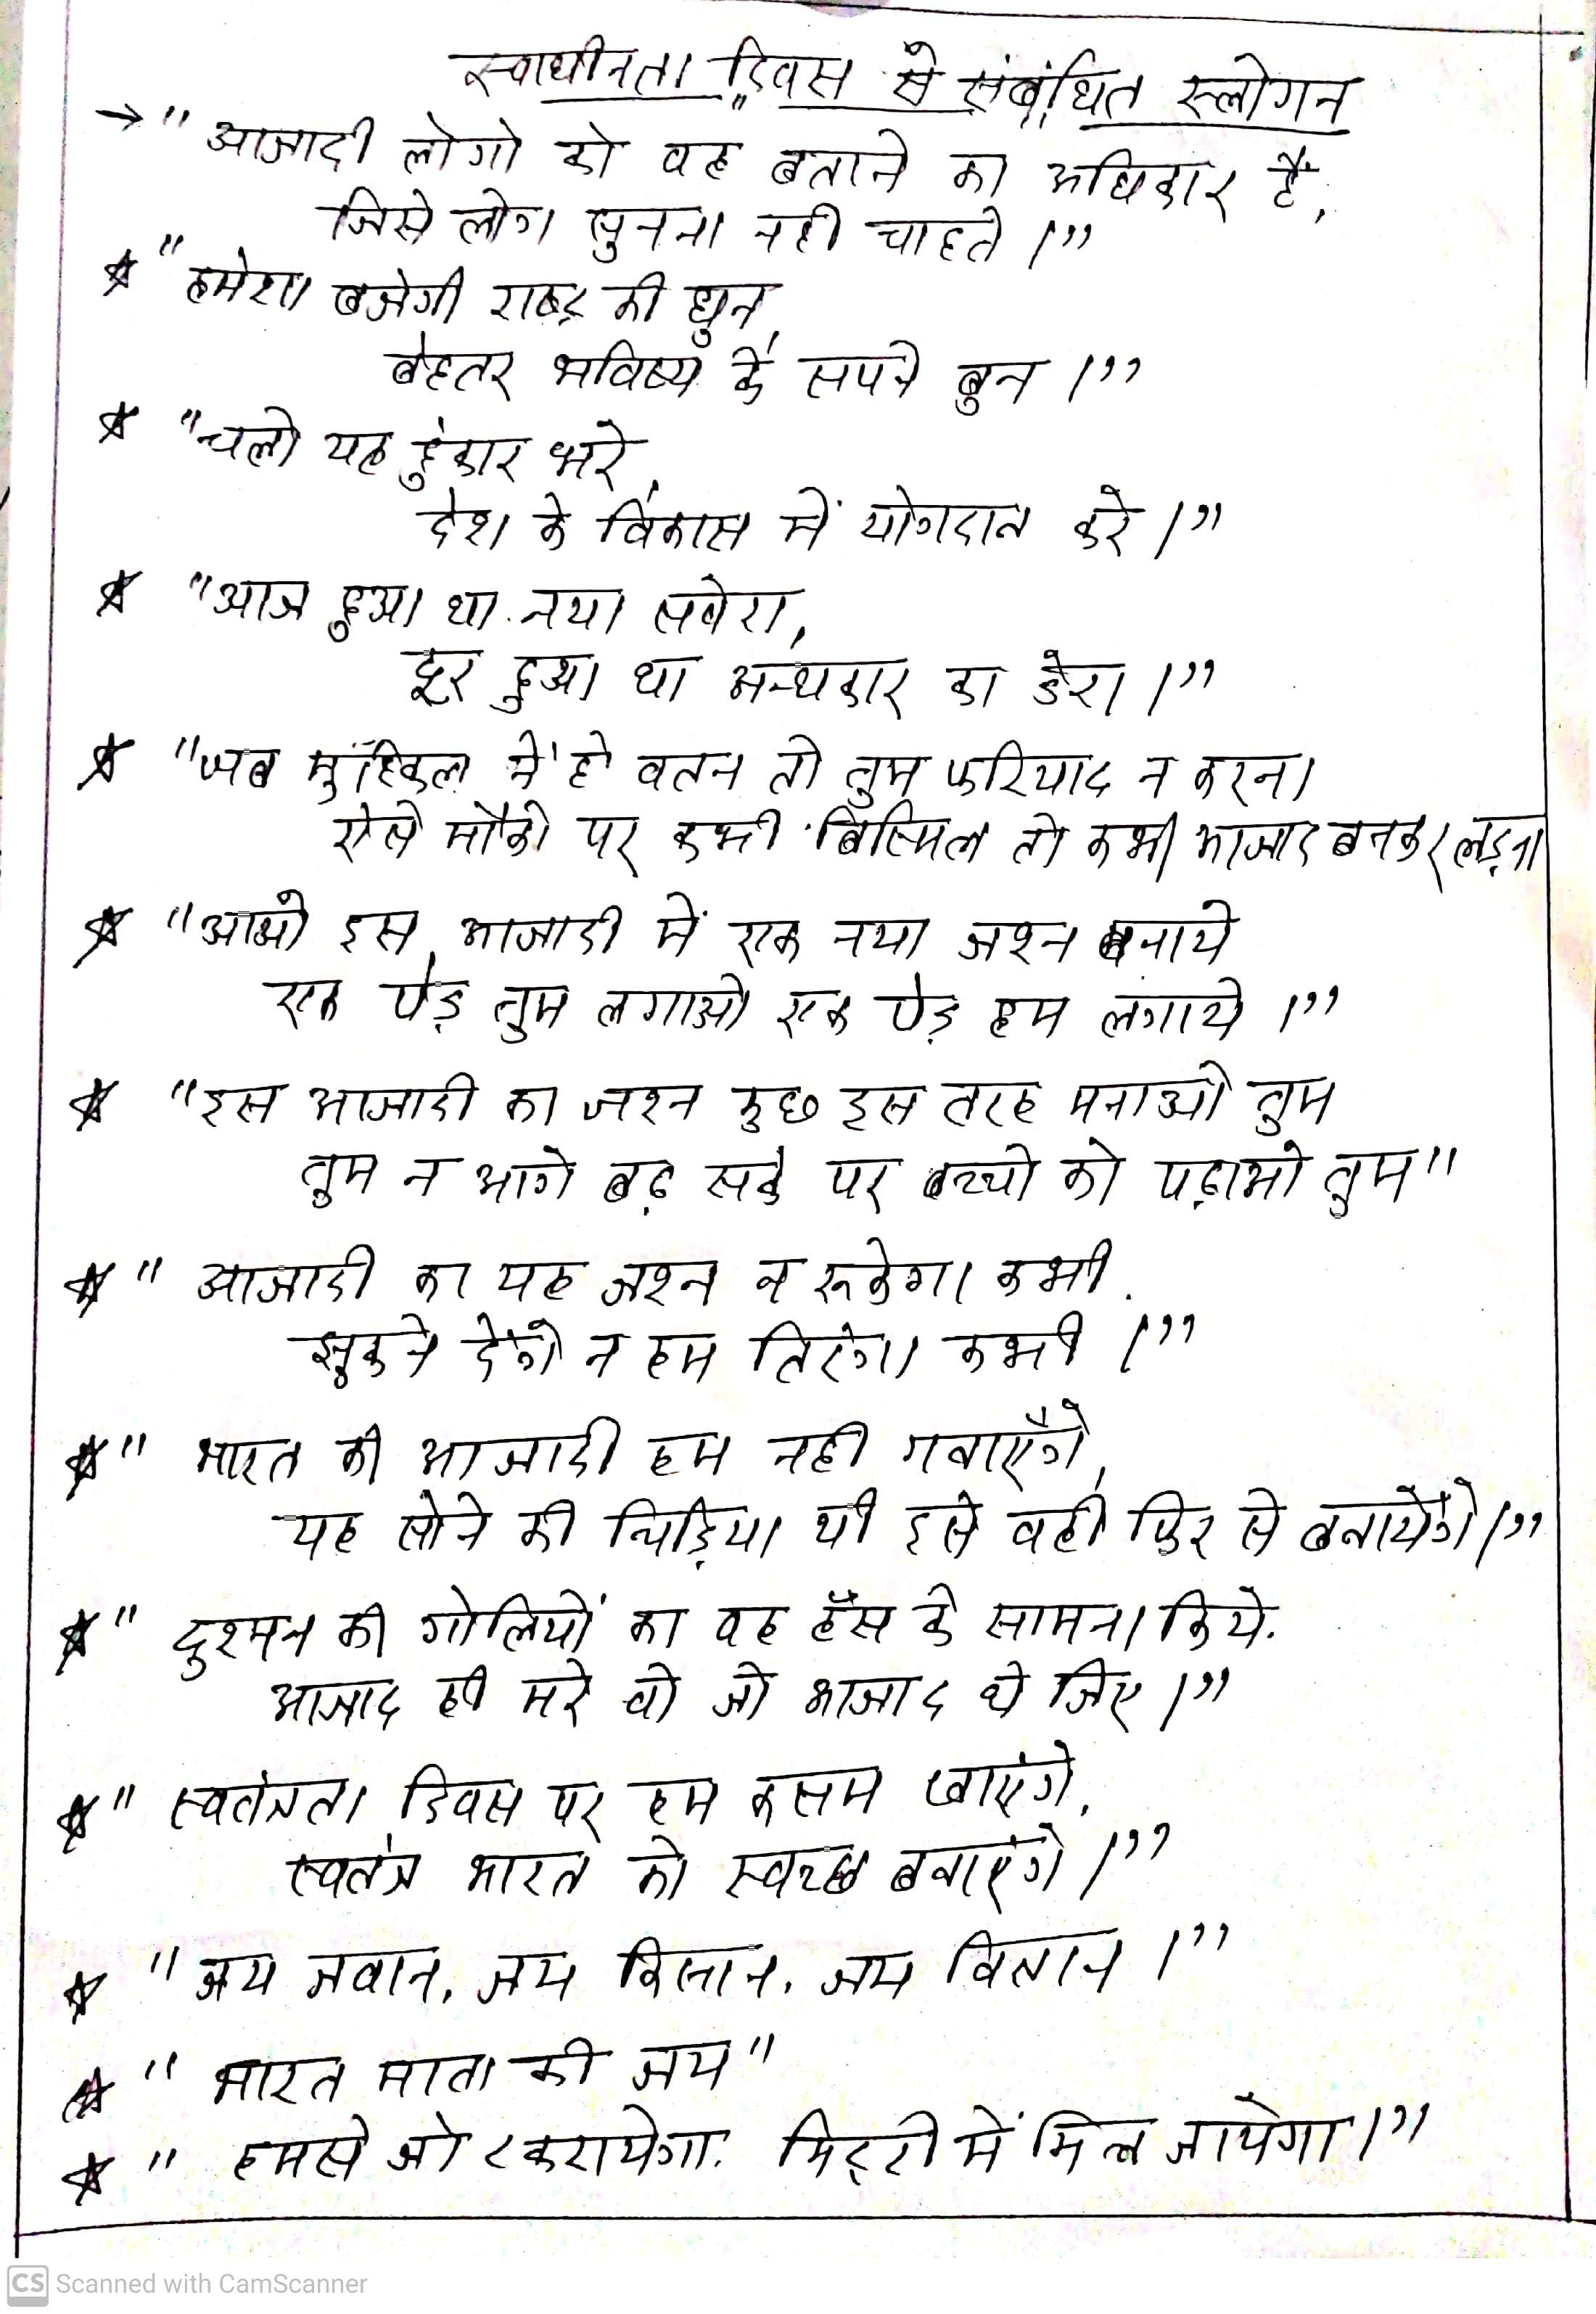 स्वाधीनता दिवस से संबंधित स्लोगन
→ "आजादी लोगो को वह बताने का अधिकार है,
जिसे लोग सुनना नही चाहते।"
★ "हमेशा बजेगी राष्ट्र की धुन,
बेहतर भविष्य के सपने बुन।"
★ "चलो यह हुंकार भरे,
देश के विकास में योगदान करे।"
★ "आज हुआ था नया सवेरा,
दूर हुआ था अन्धकार का डेरा।"
★ "जब मुश्किल में हो वतन तो तुम फरियाद न करना
ऐसे मौको पर कभी बिस्मिल तो कभी आजाद बनकर लड़ना
★ "आओ इस आजादी में एक नया जश्न बनाये
एक पेड़ तुम लगाओ एक पेड़ हम लगाये।"
★ "इस आजादी का जश्न कुछ इस तरह मनाओ तुम
तुम न आगे बढ़ सके पर बच्चो को पढ़ाओ तुम"
★ " आजादी का यह जश्न न रूकेगा कभी,
झुकने देंगे न हम तिरंगा कभी।"
★ " भारत की आजादी हम नही गवाएँगे,
यह सोने की चिड़िया थी इसे वही फिर से बनायेंगे।"
★ " दुश्मन की गोलियों का वह हँस के सामना किये.
आजाद ही मरे वो जो आजाद थे जिए।"
★ " स्वतंत्रता दिवस पर हम कसम खाएंगे,
स्वतंत्र भारत को स्वच्छ बनाएंगे।"
★ " जय जवान, जय किसान, जय विज्ञान।"
★ " भारत माता की जय"
★ " हमसे जो टकरायेगा. मिट्टी में मिल जायेगा।"
CS Scanned with CamScanner